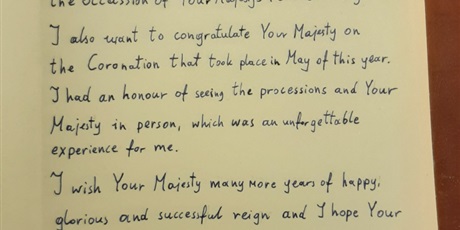 the occasion of Your Majesty's
I also want to congratulate Your Majesty on
the Coronation that took place in May of this year.
I had an honour of seeing the processions and Your
Majesty in person, which was an unforgettable
experience for me.
I wish Your Majesty many more years of happy,
glorious and successful reign and I hope Your